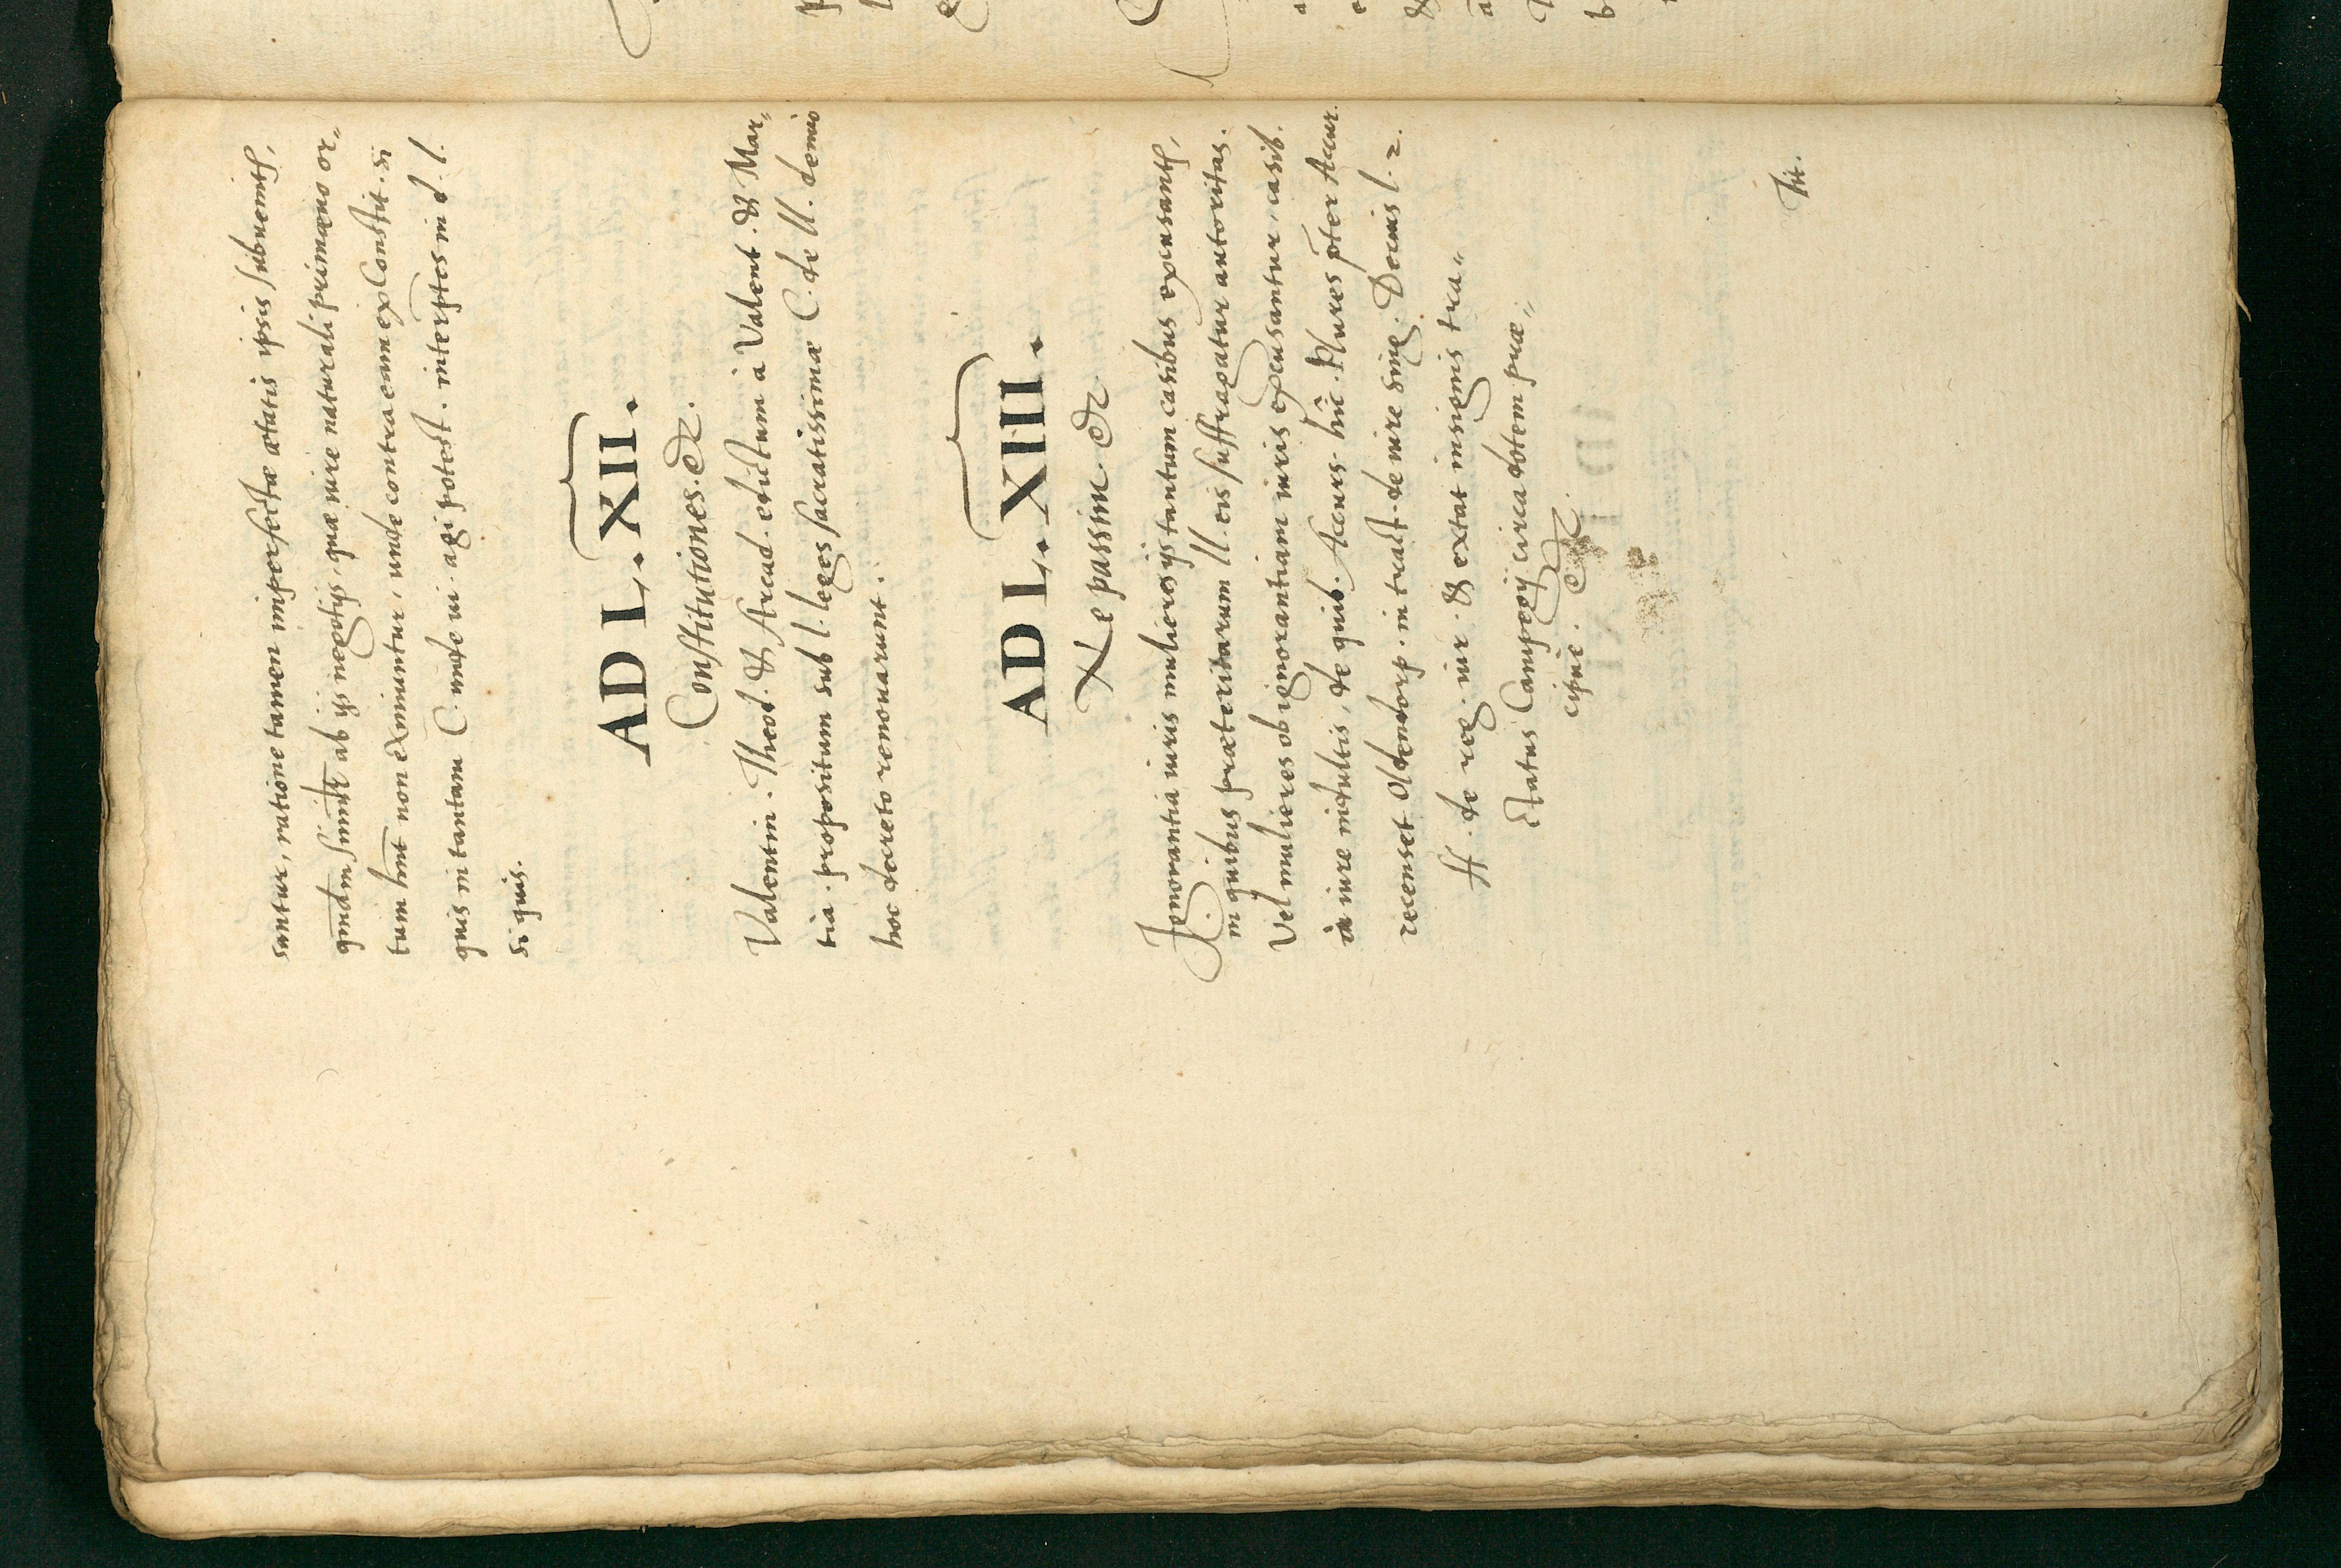 santur, ratione tamen imperfectæ ætatis ipsis subuenitʳ,
ab ijs negotijs, quæ iure naturali primæuo or„
tum hn̄t non eximuntur, unde contra eam ex Constit. si
quis in tantam C. unde ui. agi potest. interp̄tes in d. l.
si quis.
AD L. XII.
Constitutiones. &c.
Valentin. Theod. & Arcad. edictum à Valent. & Mar„
tia. propositum sub l. leges sacratissimæ C. de ll. denuo
hoc decreto renouarunt.
AD L. XIII.
Ne passim. &c
Ignorantia iuris mulieres ijs tantum casibus excusantʳ,
in quibus præteritarum ll. eis suffragatur autoritas.
Vel mulieres ob ignorantiam iuris excusantur, casib.
in iure indultis, de quib. Accurs. hîc. Plures p̄ter Accur.
recenset Oldendorp. in tract. de iure sing. Decius l. 2.
ff. de reg. iur. & extat insignis tra„
ctatus Campegij circa dotem præ„
cipue. &c.
Tit.